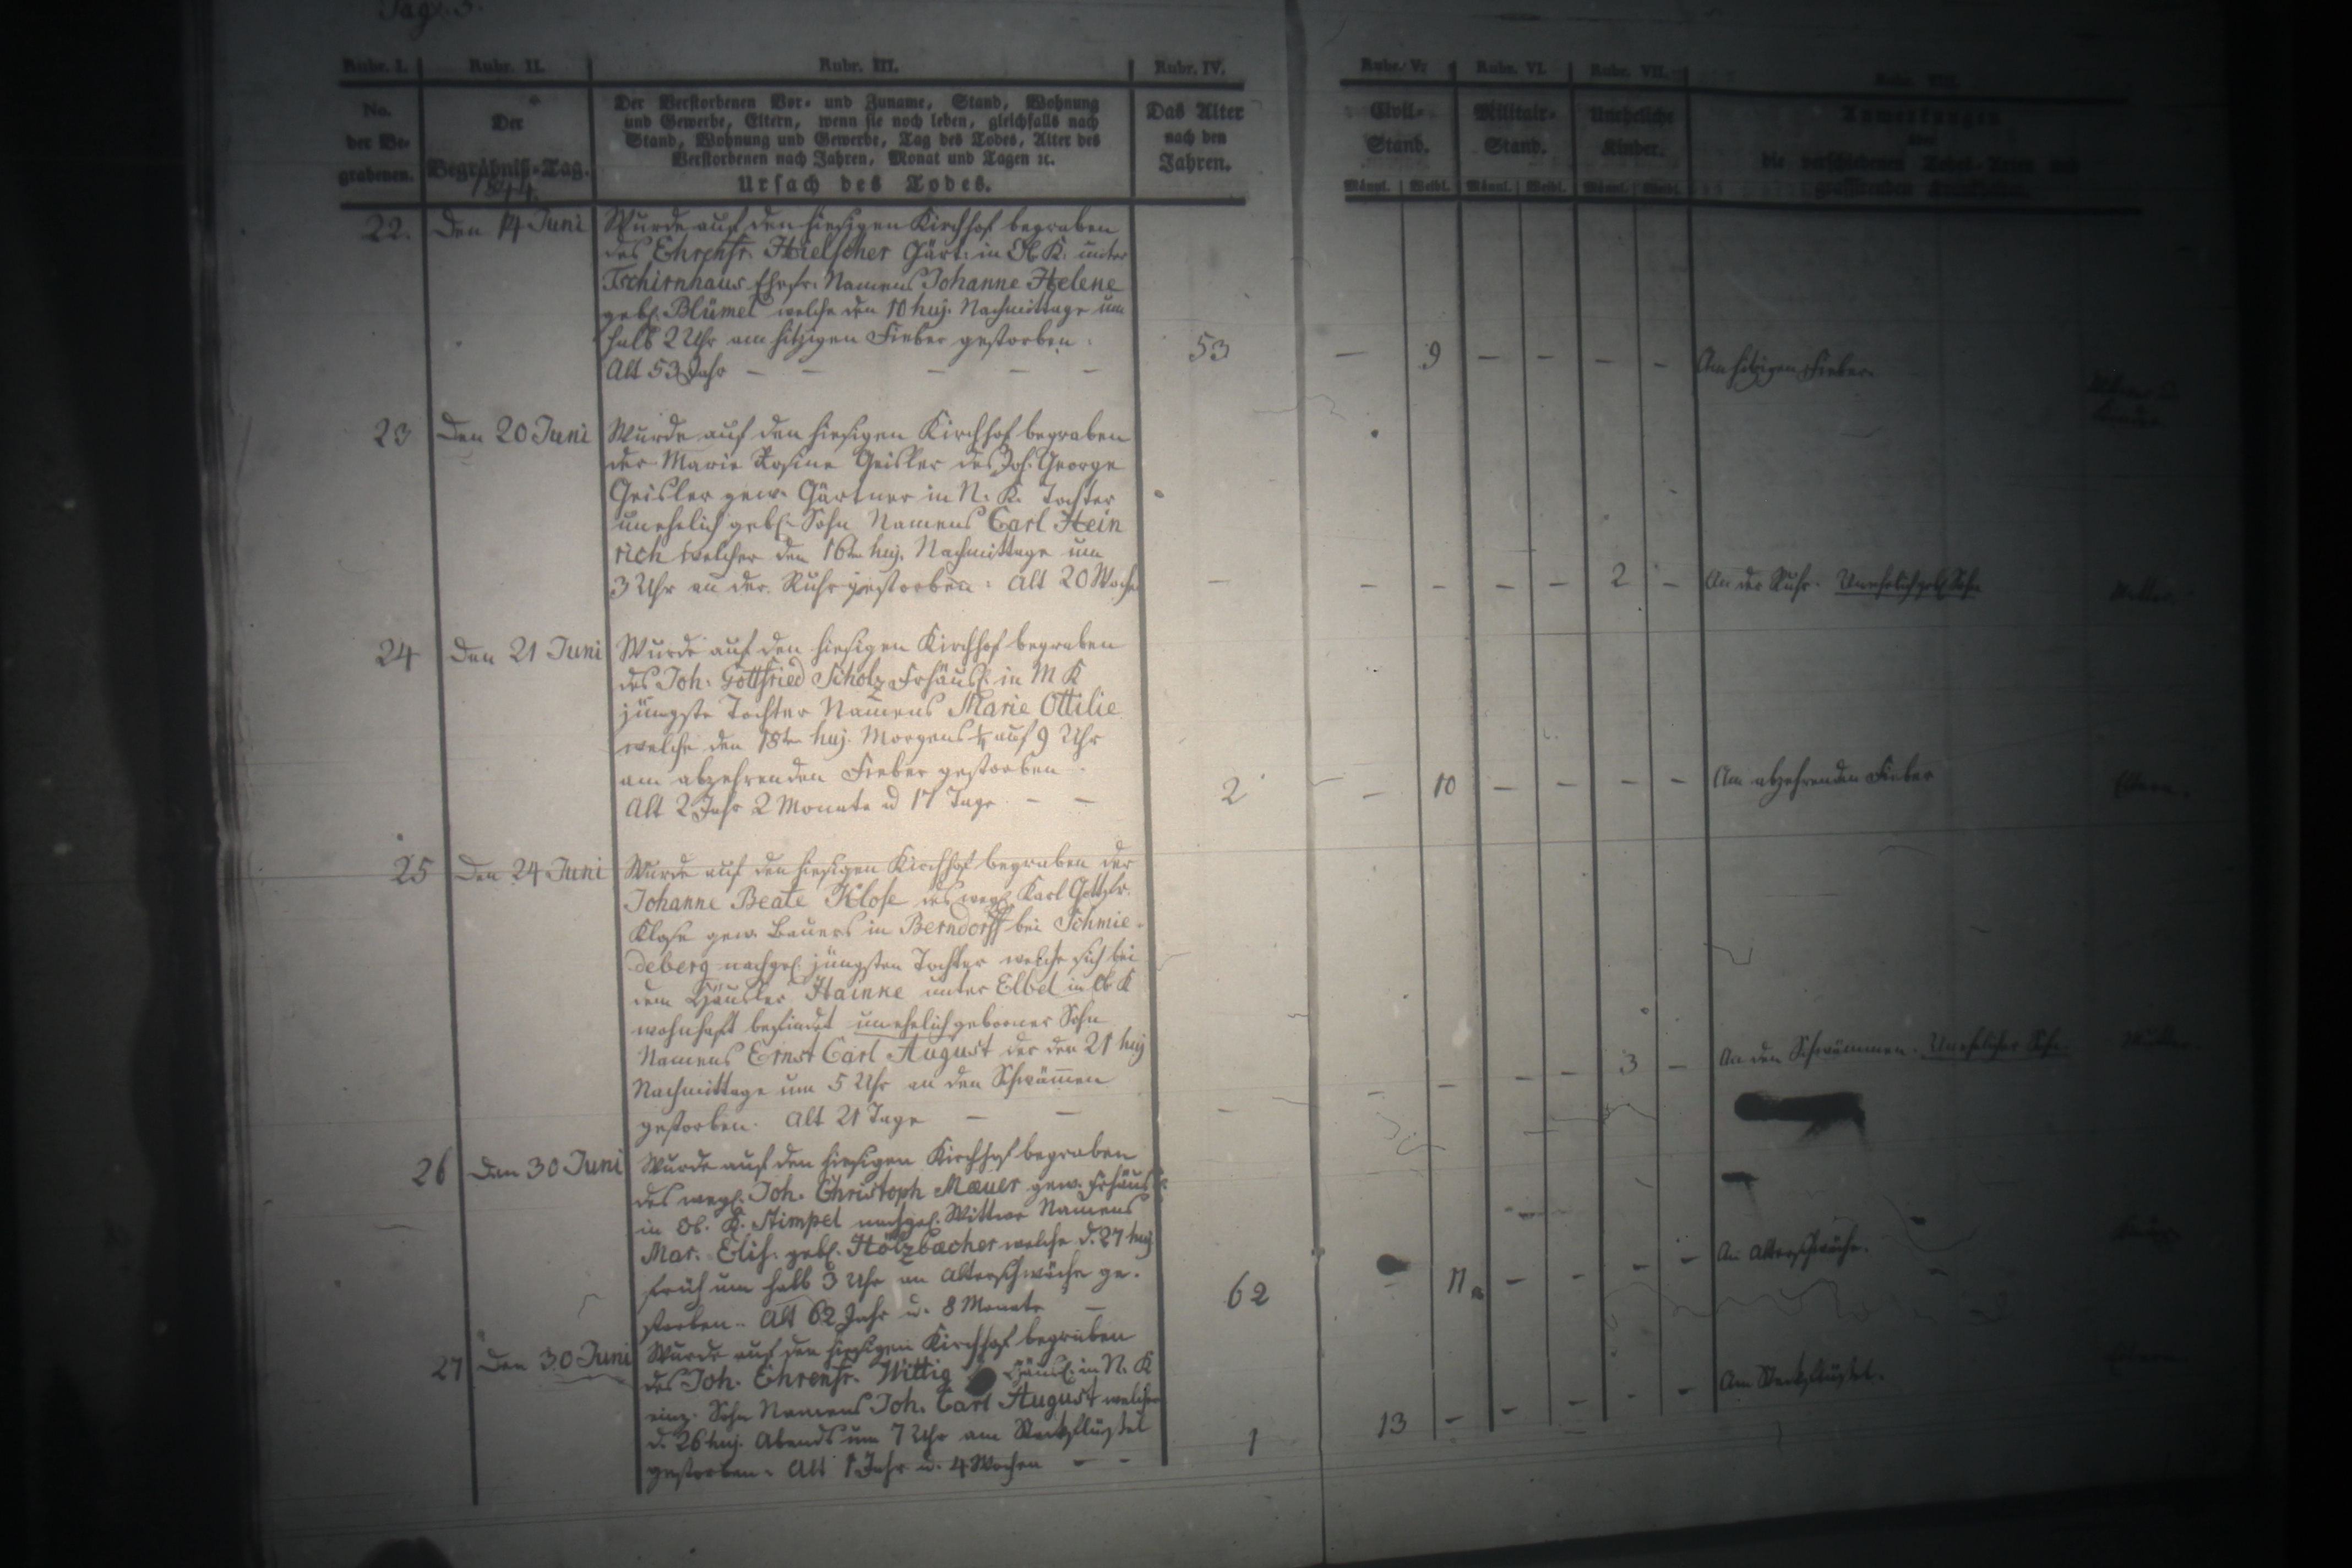 Pag. 3.
Rubr. I. Rubr. II. Rubr. III. Rubr. IV. Rubr. V. Rubr. VI. Rubr. VII. Rubr. VIII.
No. der Be- grabenen.
Der Begräbniß-Tag.
1844.
Der Verstorbenen Vor- und Zuname, Stand, Wohnung
und Gewerbe, Eltern, wenn sie noch leben, gleichfalls nach
Stand, Wohnung und Gewerbe, Tag des Todes, Alter des
Verstorbenen nach Jahren, Monat und Tagen ꝛc.
Ursach des Todes.
Das Alter
nach den
Jahren.
Civil-
Stand.
Militair-
Stand.
Uneheliche
Kinder.
Anmerkungen
über
die verschiedenen Todes-Arten und
grassirenden Krankheiten.
Männl. Weibl. Männl. Weibl. Männl. Weibl.
22. Den 14 Juni Wurde auf den hiesigen Kirchhof begraben
des Ehrenfr. Hielscher Gärt: in Ob K. unter
Tschirnhaus Ehefr. Namens Johanne Helene
geb. Blümel welche den 10 huj. Nachmittage um
halb 2 Uhr am hitzigen Fieber gestorben:
Alt 53 Jahr – – – – –
53 – 9 – – – – Am hitzigen Fieber.
23 Den 20 Juni Wurde auf den hiesigen Kirchhof begraben
der Marie Rosine Geisler des Joh. George
Geisler gew. Gärtner in N. K. Tochter
unehelich geb. Sohn Namens Carl Hein
rich welcher den 16ten huj. Nachmittage um
3 Uhr an der Ruhr gestorben: Alt 20 Woche
– – – – – 2 – An der Ruhr. Unehelich geb. Sohn Mutter.
24 Den 21 Juni Wurde auf den hiesigen Kirchhof begraben
des Joh: Gottfried Scholz Frhäusl. in M K
jüngste Tochter Namens Marie Ottilie
welche den 18ten huj. Morgens ¼ auf 9 Uhr
am abzehrenden Fieber gestorben.
Alt 2 Jahr 2 Monate u 17 Tage. – –
2 – 10 – – – – Am abzehrenden Fieber Eltern.
25 Den 24 Juni Wurde auf den hiesigen Kirchhof begraben der
Johanne Beate Klose des weyl. Karl Gottfr.
Klose gew. Bauers in Berndorff bei Schmie-
deberg nachgel. jüngsten Tochter welche sich bei
dem Häusler Hainke unter Elbel in Ob K
wohnhaft befindet unehelich geborner Sohn
Namens Ernst Carl August der den 21 huj
Nachmittage um 5 Uhr an den Schwämmen
gestorben. Alt 21 Tage – –
– – – – – 3 – An den Schwämmen. Unehelicher Sohn Mutter
26 Den 30 Juni Wurde auf den hiesigen Kirchhof begraben
des weyl. Joh. Christoph Mauer gew. Frhäusl.
in Ob. K. Stimpel nachgel. Wittwe Namens
Mar. Elis. geb. Hölzbacher welche d. 27 huj
früh um halb 3 Uhr an Altersschwäche ge-
storben. Alt 62 Jahr u. 8 Monate –
62 – 11 – – – – An Altersschwäche.
27 Den 30 Juni Wurde auf den hiesigen Kirchhof begraben
des Joh. Ehrenfr. Wittig Häusl. in N. K
einz. Sohn Namens Joh. Carl August welcher
d. 26 huj. Abends um 7 Uhr am Steckflüßel
gestorben. Alt 1 Jahr u. 4 Wochen – –
1 13 – – – – – Am Steckflüßel.